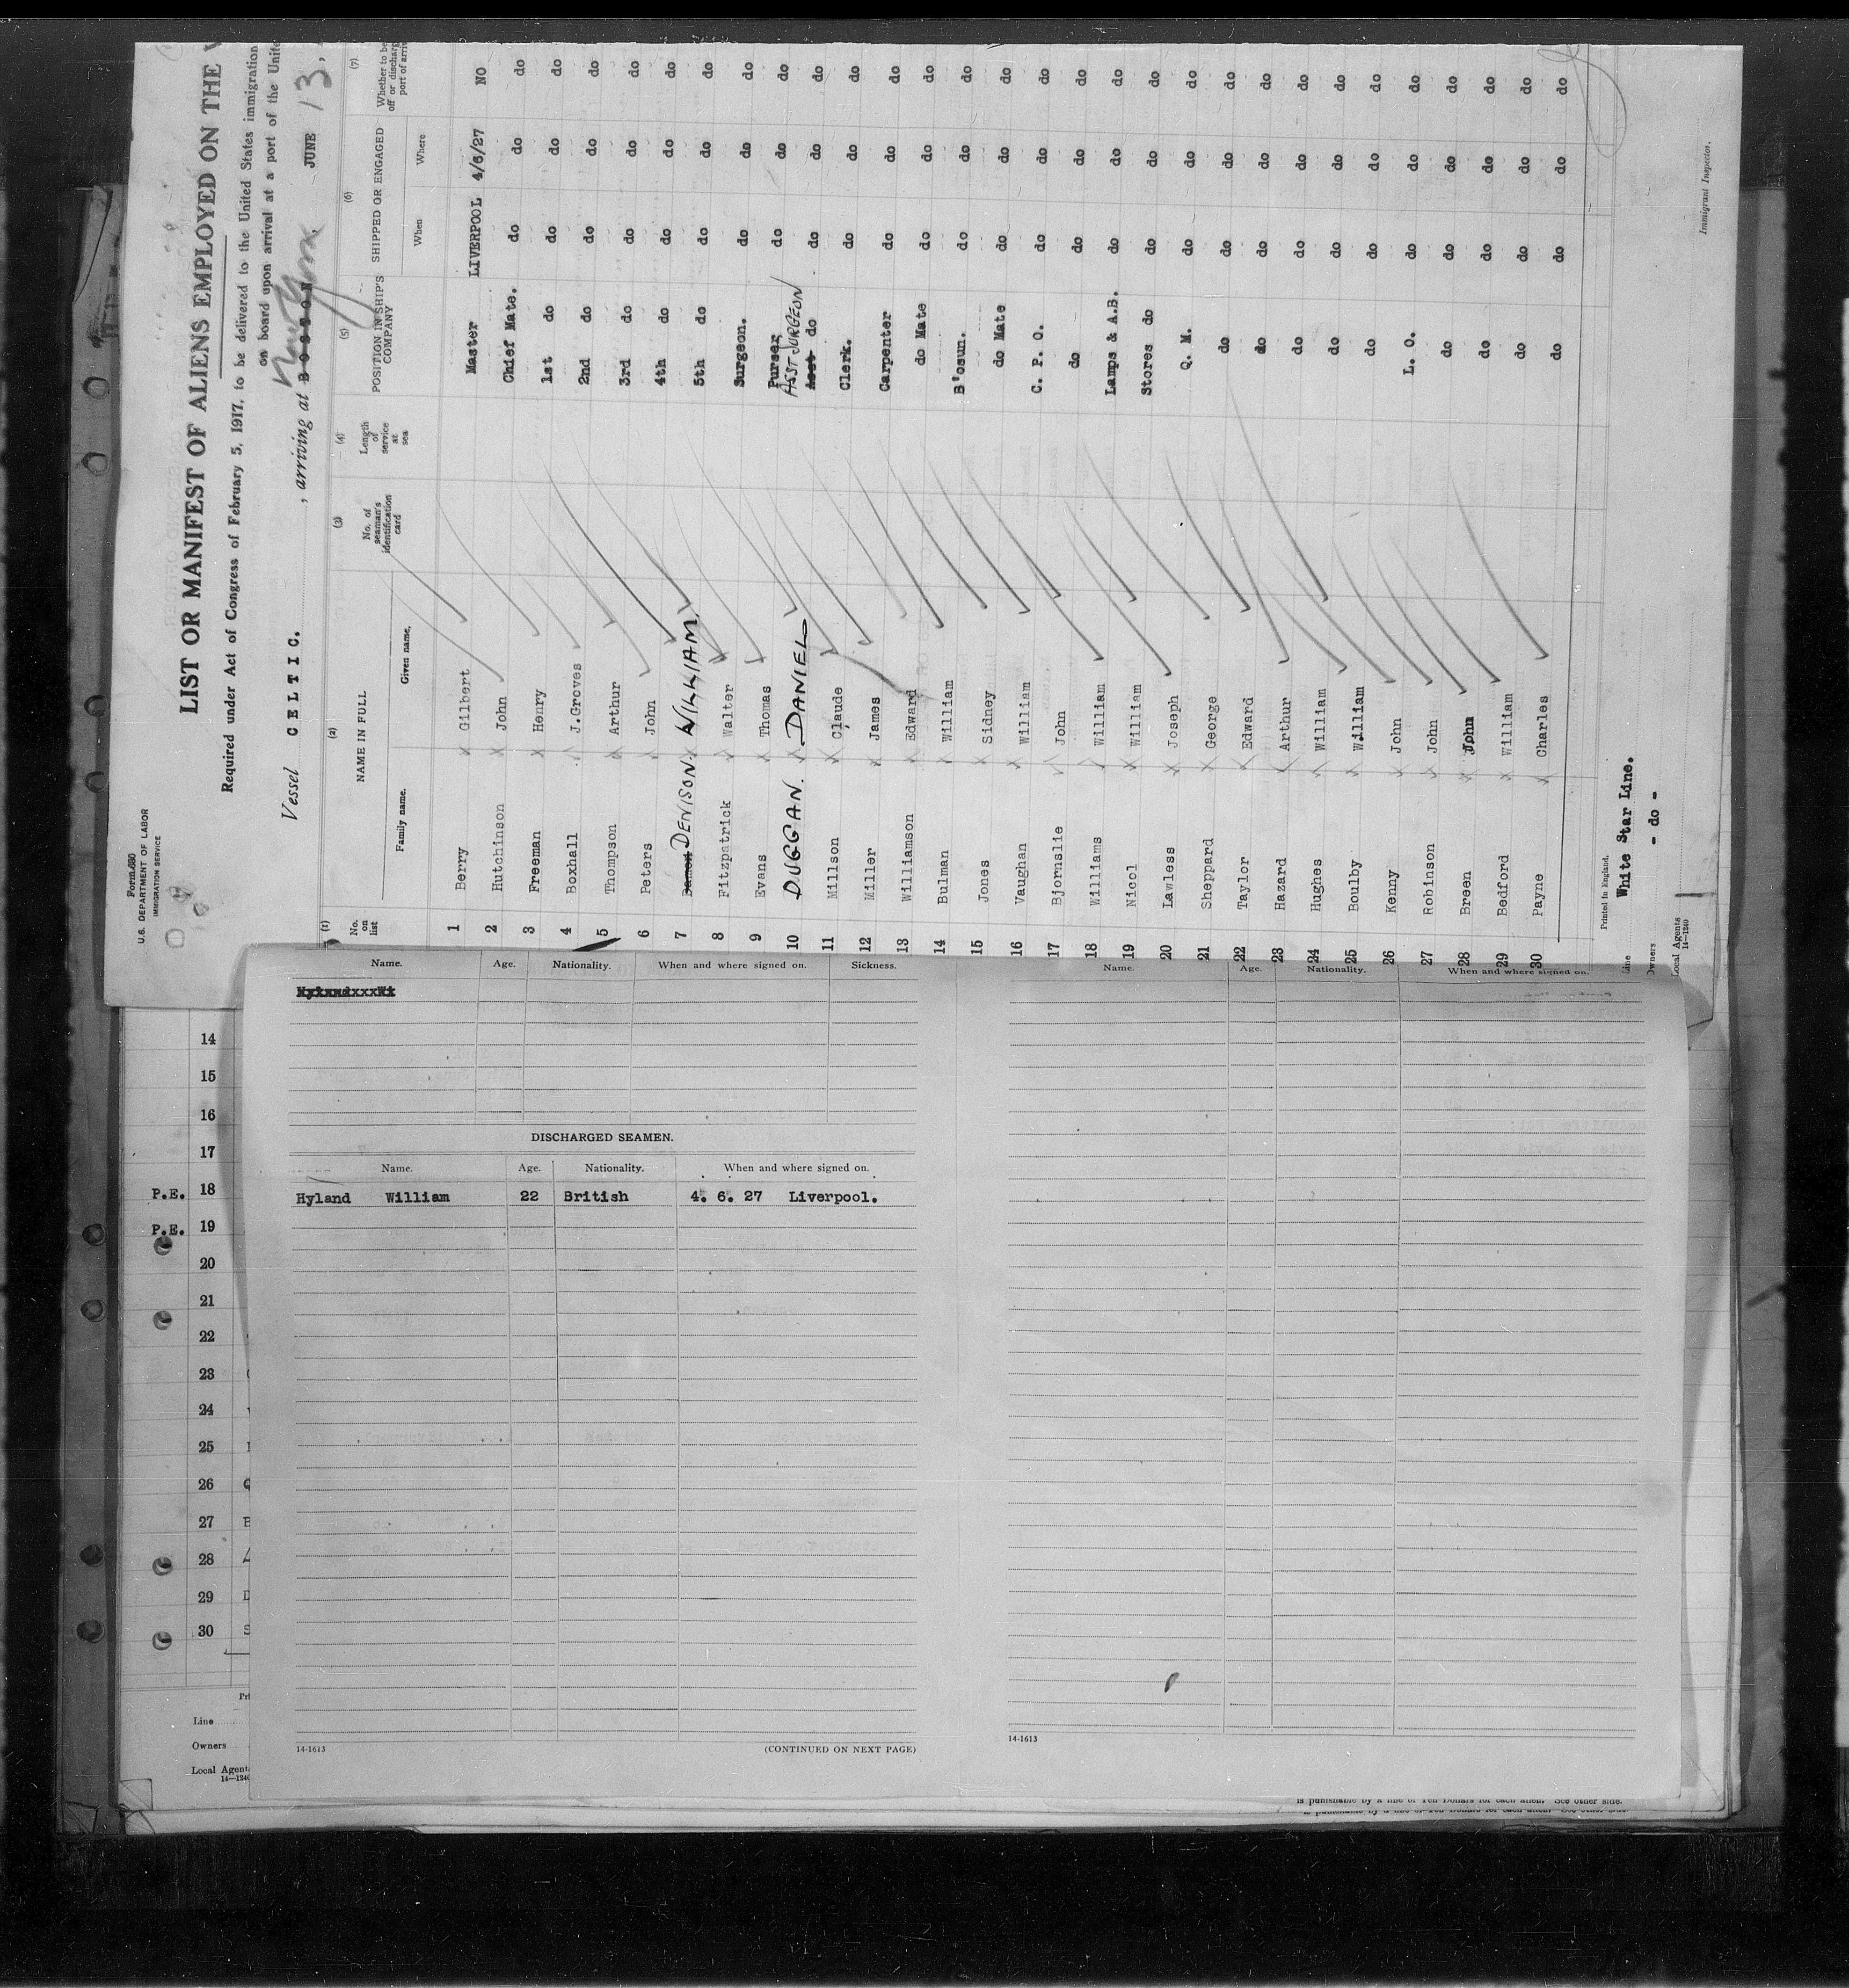 Form 680
U.S. DEPARTMENT OF LABOR
IMMIGRATION SERVICE
LIST OR MANIFEST OF ALIENS EMPLOYED ON THE
Required under Act of Congress of February 5, 1917, to be delivered to the United States immigration
on board upon arrival at a port of the Unite
Vessel CELTIC. , arriving at BOSTON. New York JUNE 13.
(1) (2) (3) (4) (5) (6) (7)
No. on list NAME IN FULL No. of seaman's identification card Length of service at sea POSITION IN SHIP'S COMPANY SHIPPED OR ENGAGED Whether to be off or discharg port of arriv
Family name. Given name. When Where
1 Berry x Gilbert Master LIVERPOOL 4/6/27 NO
2 Hutchinson x John Chief Mate. do do do
3 Freeman x Henry 1st do do do do
4 Boxhall J.Groves 2nd do do do do
5 Thompson x Arthur 3rd do do do do
6 Peters x John 4th do do do do
7 DENISON. x WILLIAM. 5th do do do do
8 Fitzpatrick x Walter Surgeon. do do do
9 Evans x Thomas Purser do do do
10 DUGGAN. x DANIEL ASST SURGEON Asst do do do do
11 Millson x Claude Clerk. do do do
12 Miller x James Carpenter do do do
13 Williamson x Edward do Mate do do do
14 Bulman x William B'osun. do do do
15 Jones x Sidney do Mate do do do
16 Vaughan x William C. P. O. do do do
17 Bjornslie x John do do do do
18 Williams x William Lamps & A.B. do do do
19 Nicol x William Stores do do do do
20 Lawless x Joseph Q. M. do do do
21 Sheppard x George do do do do
22 Taylor x Edward do do do do
23 Hazard x Arthur do do do do
24 Hughes x William do do do do
25 Boulby x William do do do do
26 Kenny x John L. O. do do do
27 Robinson x John do do do do
28 Breen x John do do do do
29 Bedford x William do do do do
30 Payne x Charles do do do do
Printed in England.
Line White Star Line.
Owners - do -
Local Agents
14-1240
Immigrant Inspector.
Name. Age. Nationality. When and where signed on. Sickness.
DISCHARGED SEAMEN.
Name. Age. Nationality. When and where signed on.
Hyland William 22 British 4. 6. 27 Liverpool.
14-1613
(CONTINUED ON NEXT PAGE)
Name. Age. Nationality. When and where signed on.
14-1613
14
15
16
17
P.E. 18
P.E. 19
20
21
22
23
24
25
26
27
28
29
30
Line
Owners
Local Agent
14-1240
is punishable by a fine of Ten Dollars for each alien. See other side.
is punishable by a fine of Ten Dollars for each alien. See other side